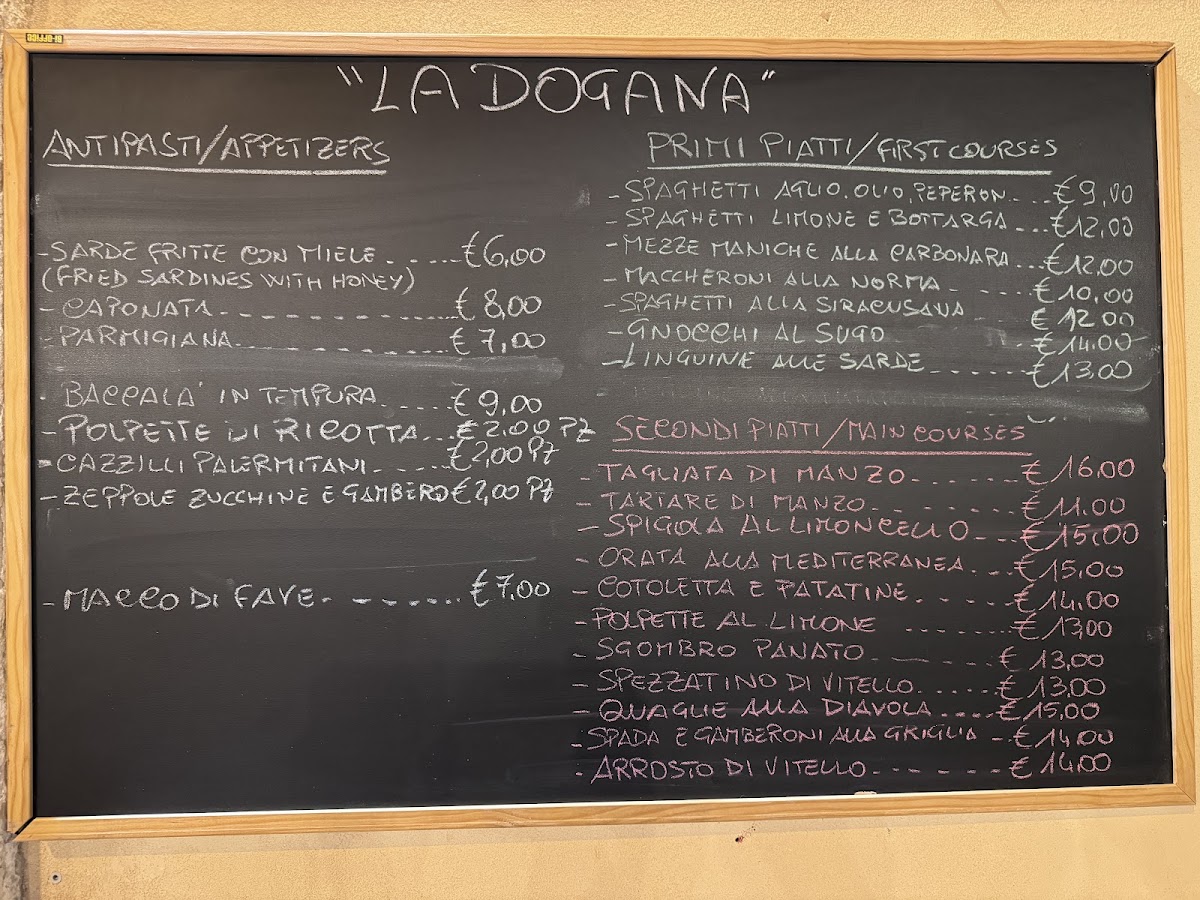 BI-OFFICE
"LA DOGANA"
ANTIPASTI/APPETIZERS
- SARDE FRITTE CON MIELE ...... €6,00
(FRIED SARDINES WITH HONEY)
- CAPONATA ............... € 8,00
- PARMIGIANA ............... € 7,00
- BACCALA' IN TEMPURA ...... € 9,00
- POLPETTE DI RICOTTA ... € 2,00 PZ
- CAZZILLI PALERMITANI ...... €2,00 PZ
- ZEPPOLE ZUCCHINE E GAMBERO €2,00 PZ
- MACCO DI FAVE ........ € 7,00
PRIMI PIATTI/FIRST COURSES
- SPAGHETTI AGLIO, OLIO, PEPERON... €9,00
- SPAGHETTI LIMONE E BOTTARGA ... €12,00
- MEZZE MANICHE ALLA CARBONARA ... €12,00
- MACCHERONI ALLA NORMA ...... €10,00
- SPAGHETTI ALLA SIRACUSANA ..... € 12 00
- GNOCCHI AL SUGO ......... €14,00
- LINGUINE ALLE SARDE ....... €13,00
SECONDI PIATTI/MAIN COURSES
- TAGLIATA DI MANZO ....... € 16,00
- TARTARE DI MANZO ....... € 11,00
- SPIGOLA AL LIMONCELLO ... €15,00
- ORATA ALLA MEDITERRANEA ... €15,00
- COTOLETTA E PATATINE ..... €14,00
- POLPETTE AL LIMONE ...... € 13,00
- SGOMBRO PANATO ...... € 13,00
- SPEZZATINO DI VITELLO ...... €13,00
- QUAGLIE ALLA DIAVOLA .... €15,00
- SPADA E GAMBERONI ALLA GRIGLIA -- €14,00
- ARROSTO DI VITELLO ...... € 14,00